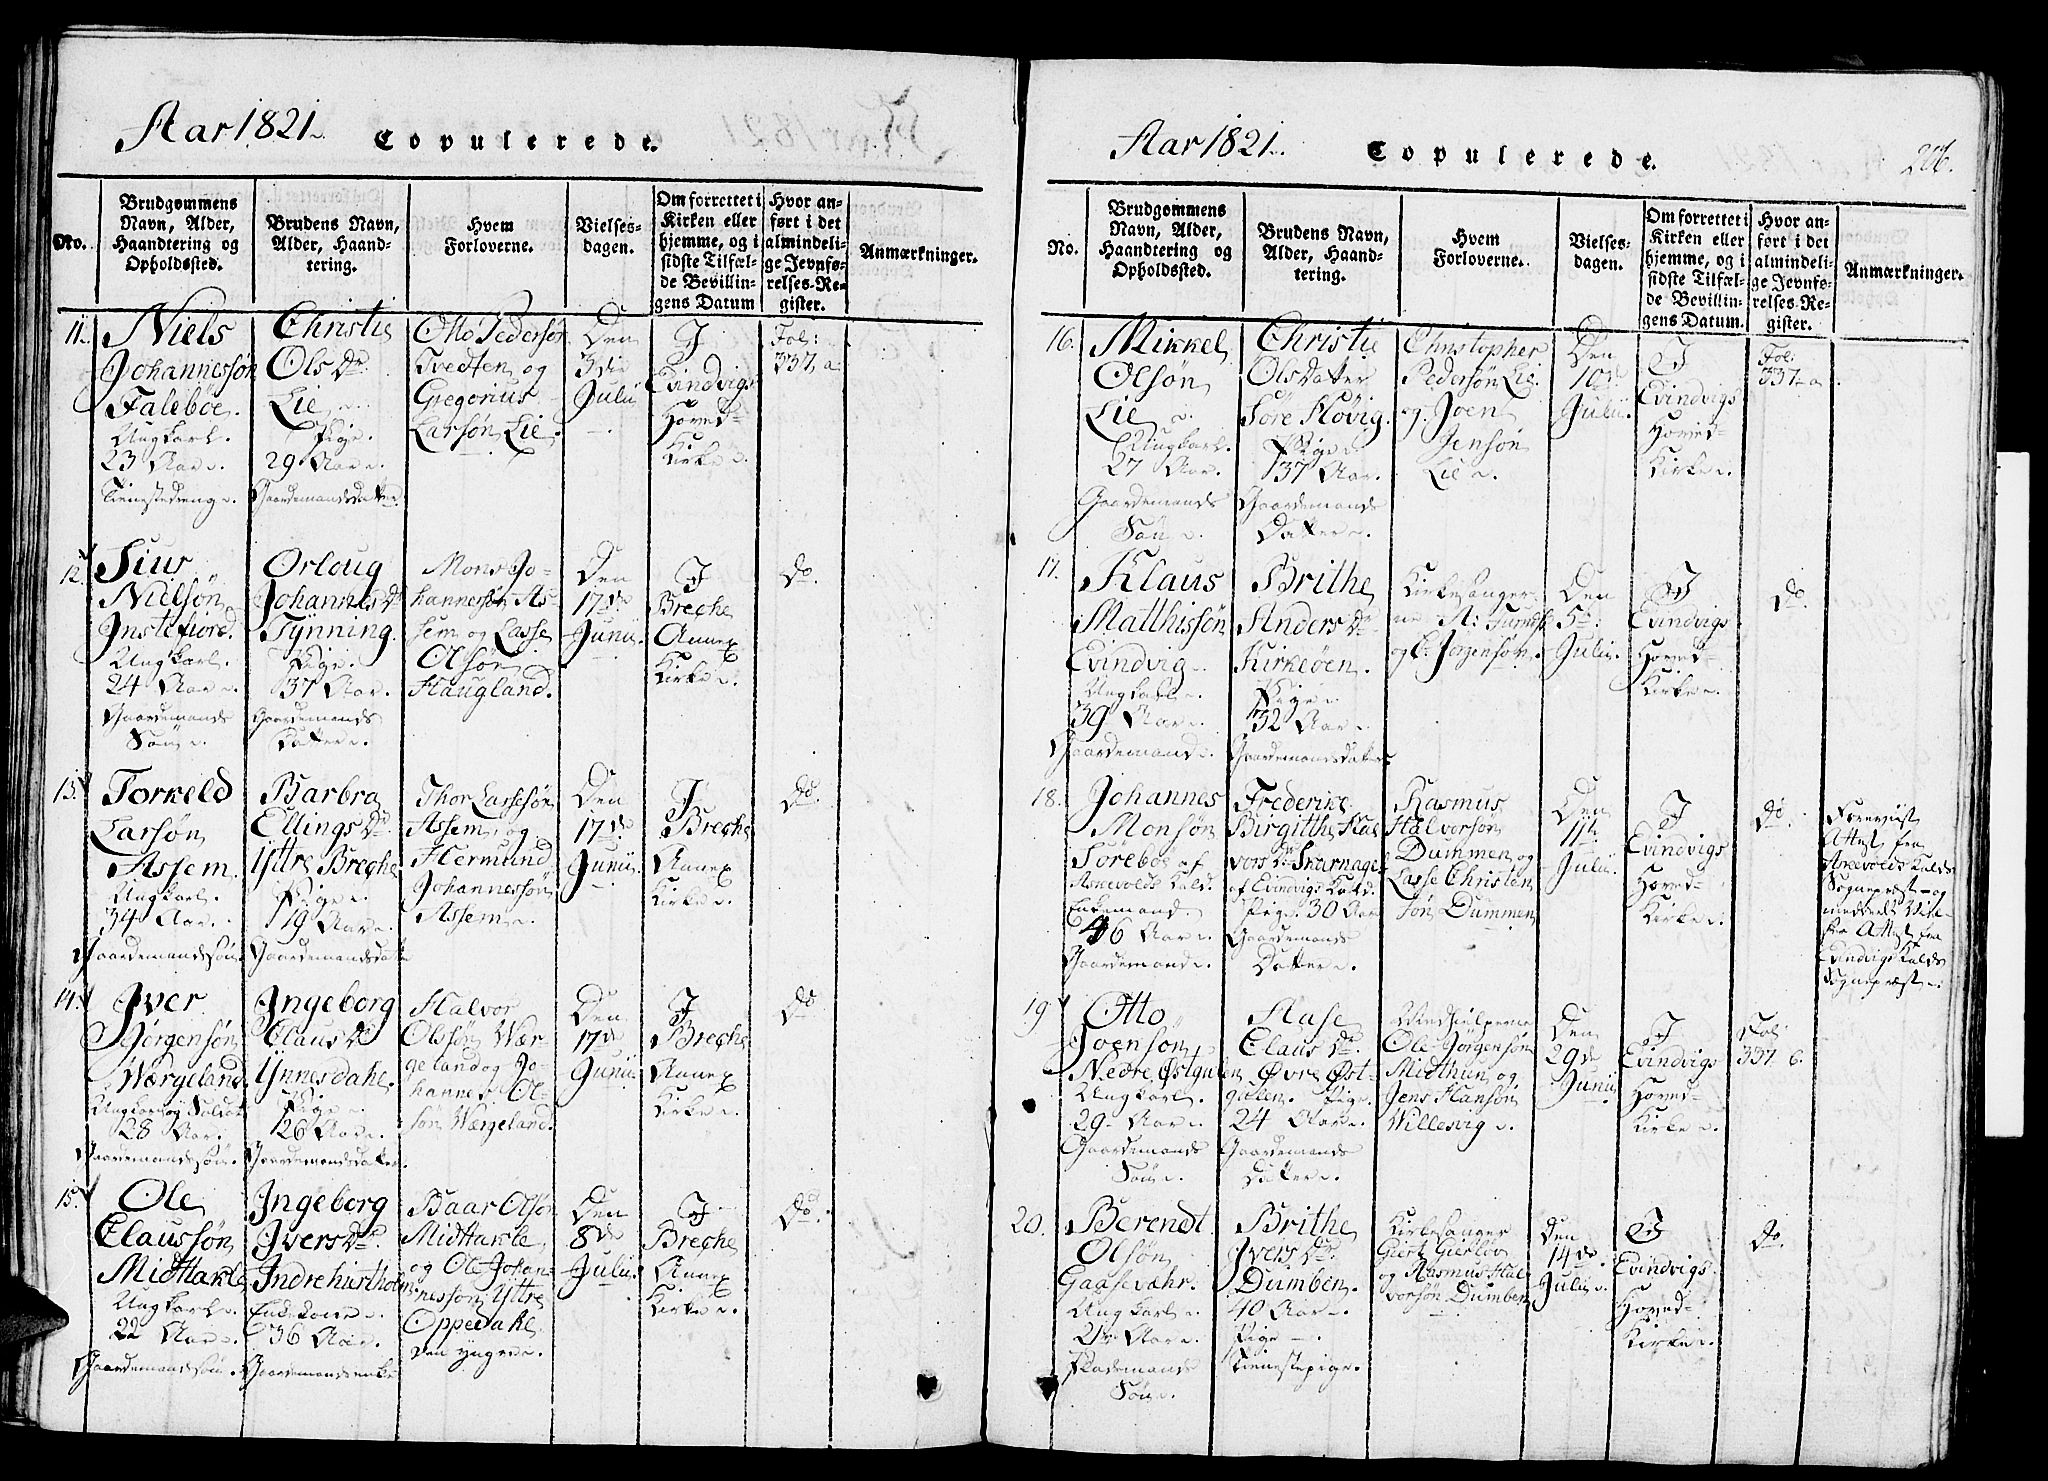 Aar 1821.
Copulerede.
No.
Brudgommens
Navn, Alder,
Haandtering og
Opholdssted.
Brudens Navn,
Alder, Haand-
tering.
Hvem
Forloverne.
Vielses-
dagen.
Om forrettet i
Kirken eller
hjemme, og i
sidste Tilfæl-
de Bevillin-
gens Datum
Hvor an-
ført i det
almindeli-
ge Jevnfø-
relses-Re-
gister.
Anmærkninger.
11.
Niels
Johannessøn
Faleböe.
Ungkarl.
23 Aar.
Tienestedreng.
Christie
Ols Dr.
Lie
Pige.
29 Aar.
Gaardemandsdatter
Otto Pedersøn
Tvedten og
Gregorius
Larsøn Lie.
Den
3die
Julii
I
Evindvigs
Hoved-
Kirke.
Fol:
337 a.
12.
Siur
Nielsøn
Instefiord.
Ungkarl.
24 Aar.
Gaardemands
Søn.
Orloug
Johannis Dr
Tynning.
Pige.
37 Aar.
Gaardemands
Datter.
Mons Jo-
hannessøn As-
sem og Lasse
Olsøn
Haugland.
Den
17de
Junii
I
Breche
Annex
Kirke.
Do.
13.
Torkeld
Larsøn
Assem.
Ungkarl.
34 Aar.
Gaardemandssøn.
Barbra
Ellings Dr.
Yttre Breche
Pige.
19 Aar.
Gaardemandsdatte
Thor Lassesøn
Assem, og
Hermund
Johannessøn
Assem.
Den
17de
Junii
I
Breche
Annex
Kirke.
Do.
14.
Iver
Jørgensøn
Wærgeland.
Ungkarl og Soldat
28 Aar.
Gaardemandssøn.
Ingeborg
Claus Dr
Ynnesdahl.
Pige.
26 Aar.
Gaardemandsdatter.
Halvor
Olssøn Wær-
geland og Jo-
hannes Ol-
søn Wærgeland.
Den
17de
Junii
I
Breche
Annex
Kirke.
Do
15.
Ole
Claussøn
Midttakle
Ungkarl.
22 Aar.
Gaardemandssøn.
Ingeborg
Ivers Dr.
Indrehustholm
Enkekone.
36 Aar.
Gaardemandsenke
Baar Olsøn
Midttakle,
og Ole Johan-
nessøn Yttre
Oppedahl
den yngre.
Den
8de
Julii
I
Breche
Annex
Kirke.
Do.
Aar 1821.
Copulerede.
206.
No.
Brudgommens
Navn, Alder,
Haandtering og
Opholdssted.
Brudens Navn,
Alder, Haand-
tering.
Hvem
Forloverne.
Vielses-
dagen.
Om forrettet i
Kirken eller
hjemme, og i
sidste Tilfæl-
de Bevillin-
gens Datum.
Hvor an-
ført i det
almindeli-
ge Jevnfø-
relses-Re-
gister.
Anmærkninger.
16.
Mikkel
Olsøn
Lie
Ungkarl.
27 Aar.
Gaardemands
Søn.
Christie
Olsdatter
Søre Høvig.
Pige
37 Aar.
Gaardemands
Datter.
Christopher
Pedersøn Lie.
og Joen
Jensøn
Lie.
Den
10de
Julii.
I
Evindvigs
Hoved-
Kirke.
Fol:
337 a.
17.
Klaus
Matthissøn
Evindvig
Ungkarl.
39 Aar.
Gaardemand.
Brithe
Anders Dr
Kirkeøen.
Pige.
32 Aar.
Gaardemandsdatter
Kirkesanger-
ne A:
og C. Jørgensøn.
Den
5te
Julii.
I
Evindvigs
Hoved-
Kirke.
Do.
18.
Johannes
Monsøn
Sørebøe af
Askevolds Kald.
Enkemand.
46 Aar.
Gaardemand.
Frederike
Birgitthe Hal
vors Dr Skarnagel
af Evindvigs Kald.
Pige. 30 Aar
Gaardemands
Datter.
Rasmus
Halvorsøn
Dummen og
Lasse Christen
søn Dummen
Den
11te
Julii.
I
Evindvigs
Hoved-
Kirke.
Do.
Foreviist
Attest fra
Askevolds Kalds
Sognepræst og
meddeelt
Attest fra
Evindvigs Kalds
Sognepræst.
19
Otto
Joensøn
Nedre Østgulen
Ungkarl.
29 Aar.
Gaardemands
Søn.
Aase
Claus Dr.
Øvre Øst-
gulen. Pige.
24 Aar.
Gaardemands
Datter.
Medhielperne
Ole Jørgensøn
Midthun og
Jens Hansøn
Willesvig.
Den
29de
Junii
I
Evindvigs
Hoved-
Kirke.
Fol:
337 b.
20.
Berendt
Olsøn
Gaasevær.
Ungkarl.
Aar.
Søn.
Brithe
Ivers Dr.
Dumben.
40 Aar.
Pige.
Tienestepige.
Kirkesanger
Giert Gierløv
og Rasmus Hal
vorsøn Dumben
Den
14de
Julii.
I
Evindvigs
Hoved-
Kirke.
Do.